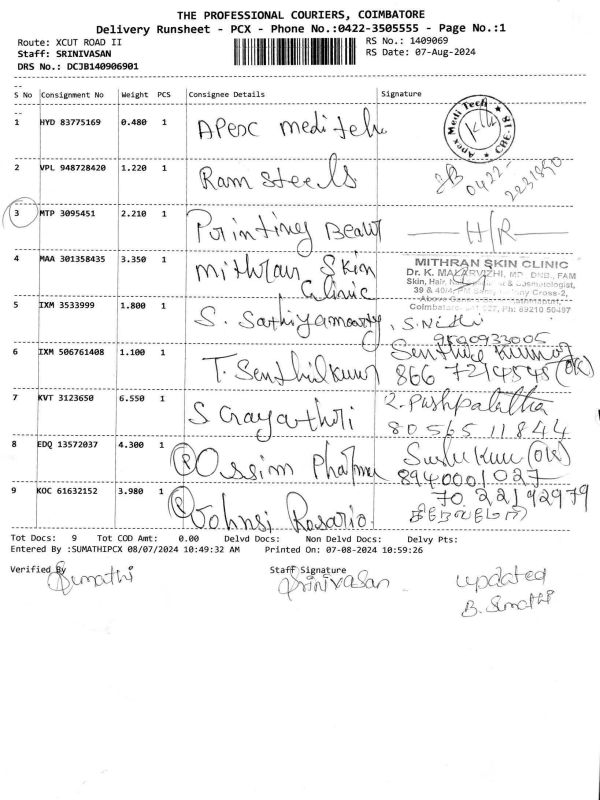 THE PROFESSIONAL COURIERS, COIMBATORE
Delivery Runsheet - PCX - Phone No.:0422-3505555 - Page No.:1
Route: XCUT ROAD II
RS No.: 1409069
Staff: SRINIVASAN
RS Date: 07-Aug-2024
DRS No.: DCJB140906901
S No Consignment No Weight PCS Consignee Details Signature
1 HYD 83775169 0.480 1 Apex meditech
Apex Medi Tech CBE-18
2 VPL 948728420 1.220 1 Ram steels
0422-2231890
3 MTP 3095451 2.210 1 Printing Beaut H/R
4 MAA 301358435 3.350 1 Mithran Skin Clinic
MITHRAN SKIN CLINIC
Dr. K. MALARVIZHI, MD., DNB., FAM
5 IXM 3533999 1.800 1 S. Sathiyamoorty, S. Nithi
6 IXM 506761408 1.100 1 T. Senthilkumar Senthil Kumar
7 KVT 3123650 6.550 1 S Gayathri R. Pushpalatha
80565 11844
8 EDQ 13572037 4.300 1 Ossim Pharma
8940001027
9 KOC 61632152 3.980 1 Johnsi Rosario 70 22192979
Tot Docs: 9 Tot COD Amt: 0.00 Delvd Docs: Non Delvd Docs: Delvy Pts:
Entered By :SUMATHIPCX 08/07/2024 10:49:32 AM Printed On: 07-08-2024 10:59:26
Verified By Staff Signature
Sumathi Srinivasan updated
B. Sumathi